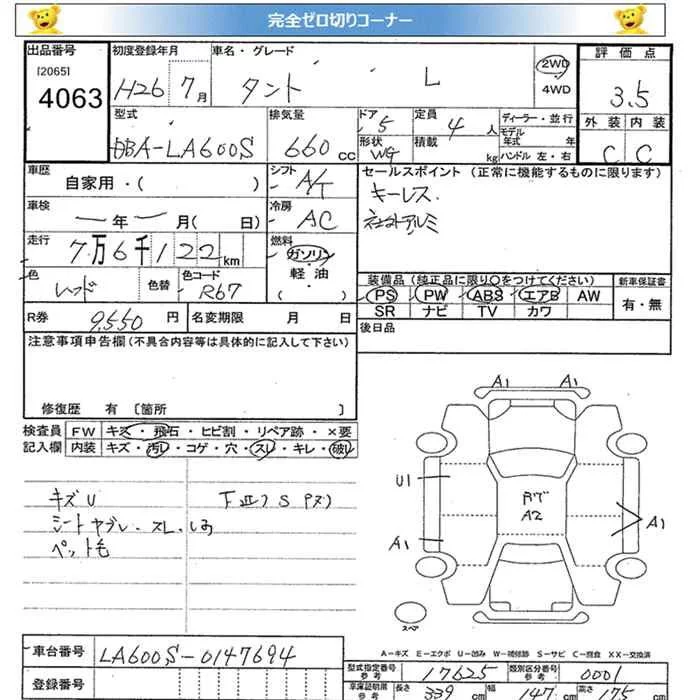 完全ゼロ切りコーナー
出品番号 初度登録年月 車名・グレード 評価点
[2065] 4063
H26 7月 タント L 2WD 4WD 3.5
外装 内装
C C
型式 排気量 ドア 定員 ディーラー・並行
DBA-LA600S 660cc 5 4人 モデル年式 年
形状 積載 ハンドル 左・右
WG kg
車歴 シフト セールスポイント (正常に機能するものに限ります)
自家用・( ) A/T キーレス
車検 冷房
ー年ー月( 日) AC 社外アルミ
走行 燃料
7万6千122km ガソリン・軽油・( )
色 色替 色コード
レッド R67
装備品(純正品に限り〇をつけてください) 新車保証書
PS PW ABS エアB AW 有・無
SR ナビ TV カワ
R券 9,550円 名変期限 月 日
後日品
注意事項申告欄(不具合内容等は具体的に記入して下さい)
修復歴 有 〔箇所 〕
検査員 FW キズ・飛石・ヒビ割・リペア跡・×要
記入欄 内装 キズ・汚レ・コゲ・穴・スレ・キレ・破レ
キズU
シートヤブレ、スレ、しみ
ペット毛
A1 A1
U1
A2
A1 A1
スペア
A-キズ E-エクボ U-凹み W-補修跡 S-サビ C-腐食 XX-交換済
車台番号 LA600S-0147694
型式指定番号 参考 17625 類別区分番号 参考 0001
登録番号
車庫証明用 参考 長さ 339cm 幅 147cm 高さ 175cm